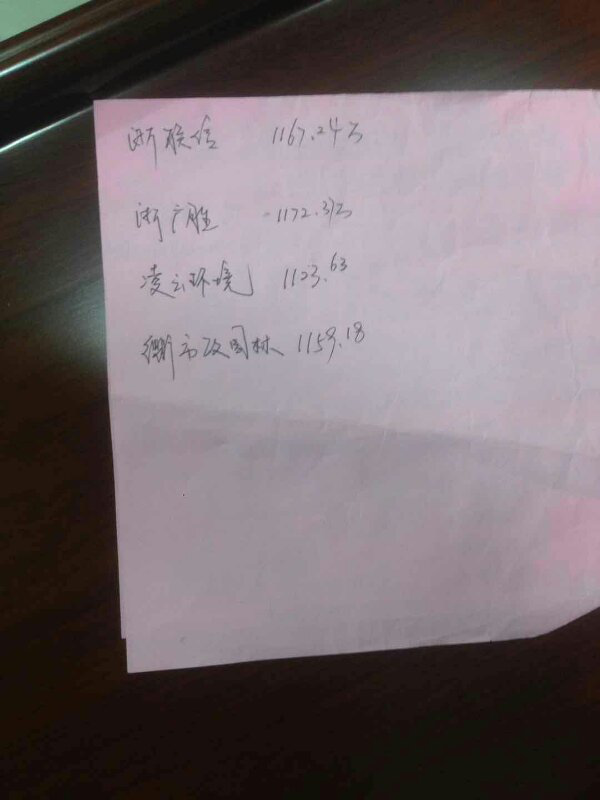 浙联信 1167.24万
浙广胜 1172.3万
凌云环境 1123.63
市政园林 1159.18